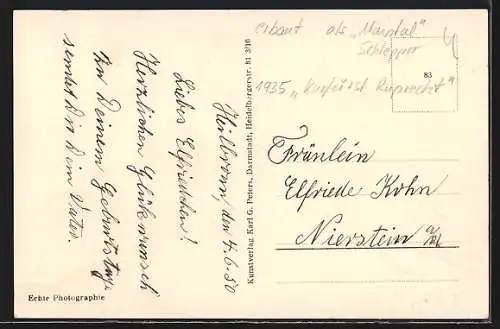 Heilbronn, den 4.6.50
Liebes Elfriedchen!
Herzlichen Glückwunsch
zu Deinem Geburtstage
sendet Dir Dein Vater.
Echte Photographie
Kunstverlag Karl G. Peters, Darmstadt, Heidelbergerstr. 81 3/16
erbaut als „Murgtal"
Schlepper
1935 „Kurfürst Ruprecht"
83
Fräulein
Elfriede Kohn
Nierstein a/Rh.